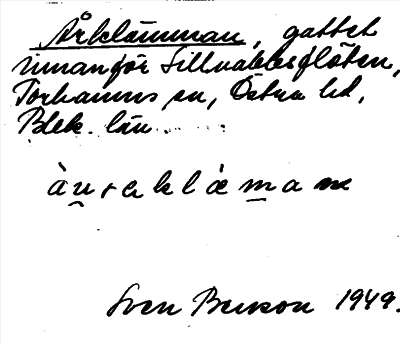 Årklämman, gattet
innanför Sillnabbsflöten,
Torhamns sn, Östra hd,
Blek. län
Sven Benson 1949.